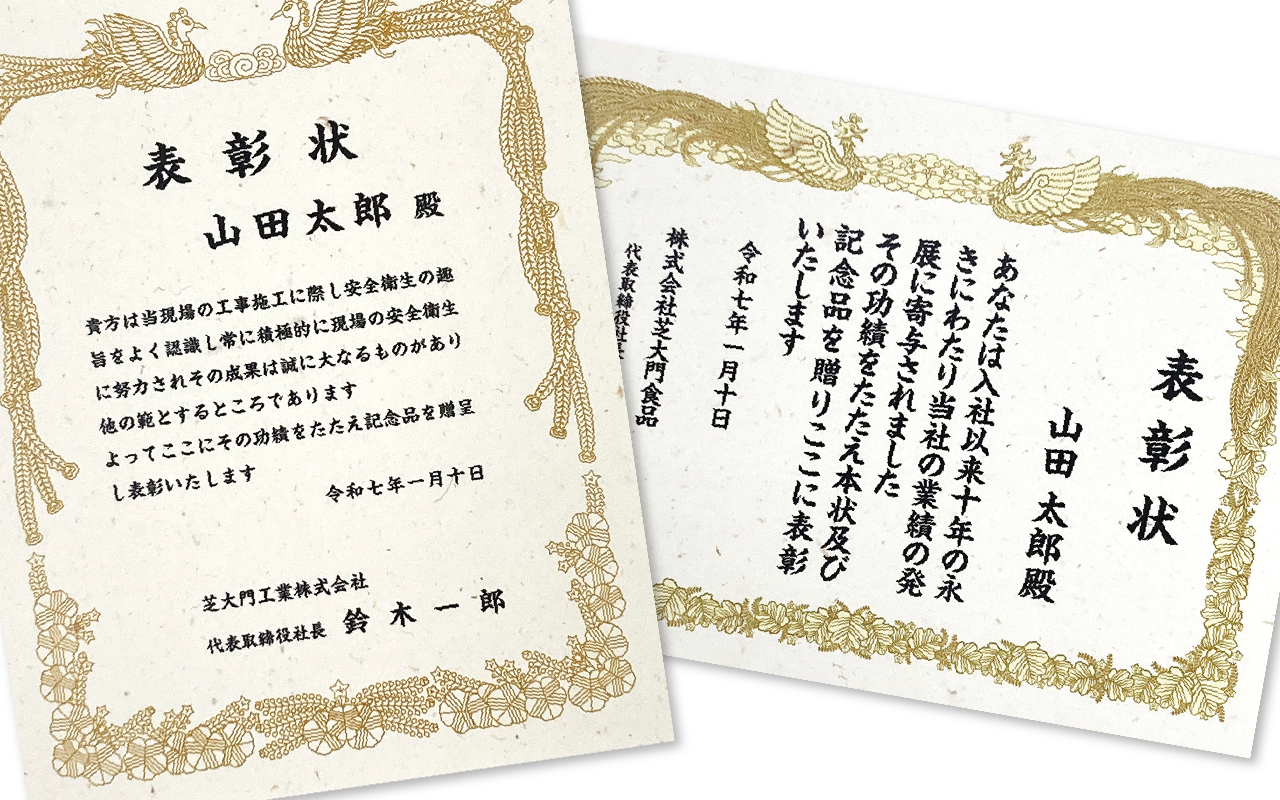 表彰状
山田太郎 殿
貴方は当現場の工事施工に際し安全衛生の趣
旨をよく認識し常に積極的に現場の安全衛生
に努力されその成果は誠に大なるものがあり
他の範とするところであります
よってここにその功績をたたえ記念品を贈呈
し表彰いたします
令和七年一月十日
芝大門工業株式会社
代表取締役社長 鈴木一郎
表彰状
山田太郎殿
あなたは入社以来十年の永
きにわたり当社の業績の発
展に寄与されました
その功績をたたえ本状及び
記念品を贈りここに表彰
いたします
令和七年一月十日
株式会社芝大門食品
代表取締役社長